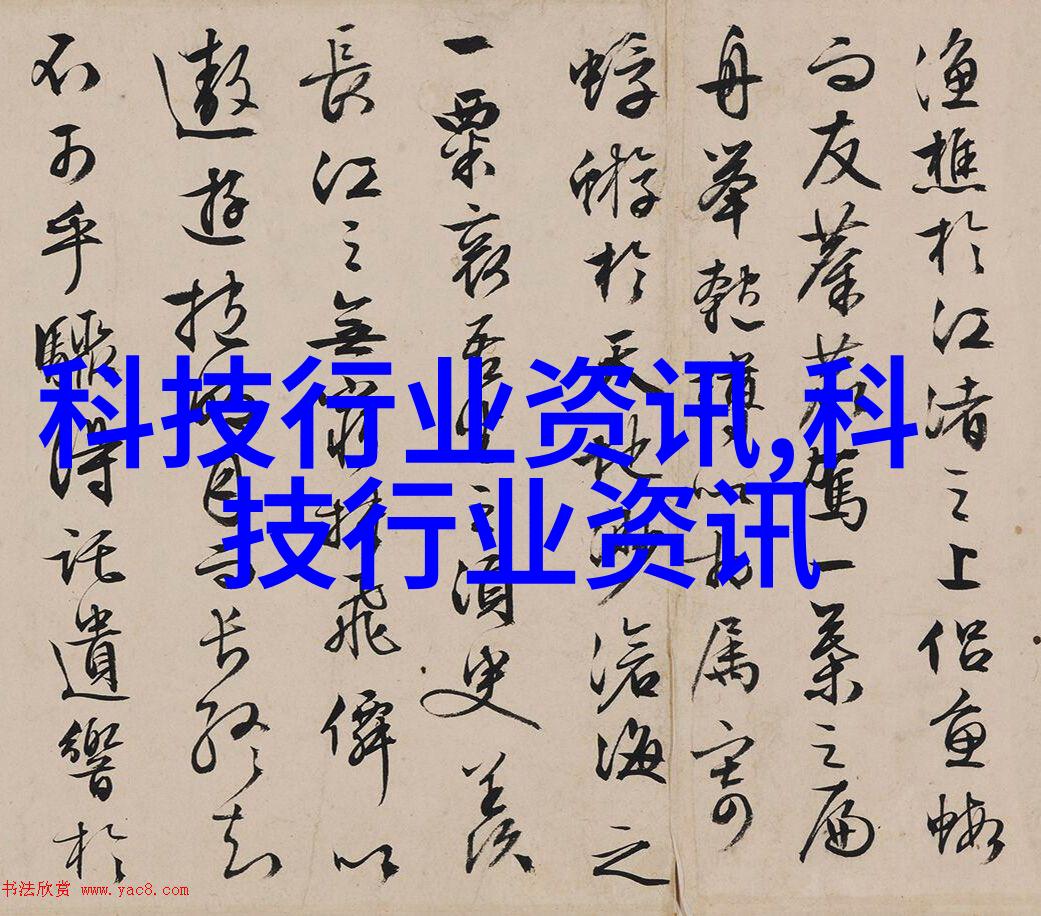 漁樵於江渚之上侶魚蝦
而友麋鹿駕一葉之扁
舟舉匏尊以相属寄
蜉蝣於天地渺滄海之
一粟哀吾生之須臾羨
長江之無窮挾飛僊以
遨遊抱明月而長終知
不可乎驟得託遺響於
科技行业资讯,科
技行业资讯
书法欣赏 www.yac8.com